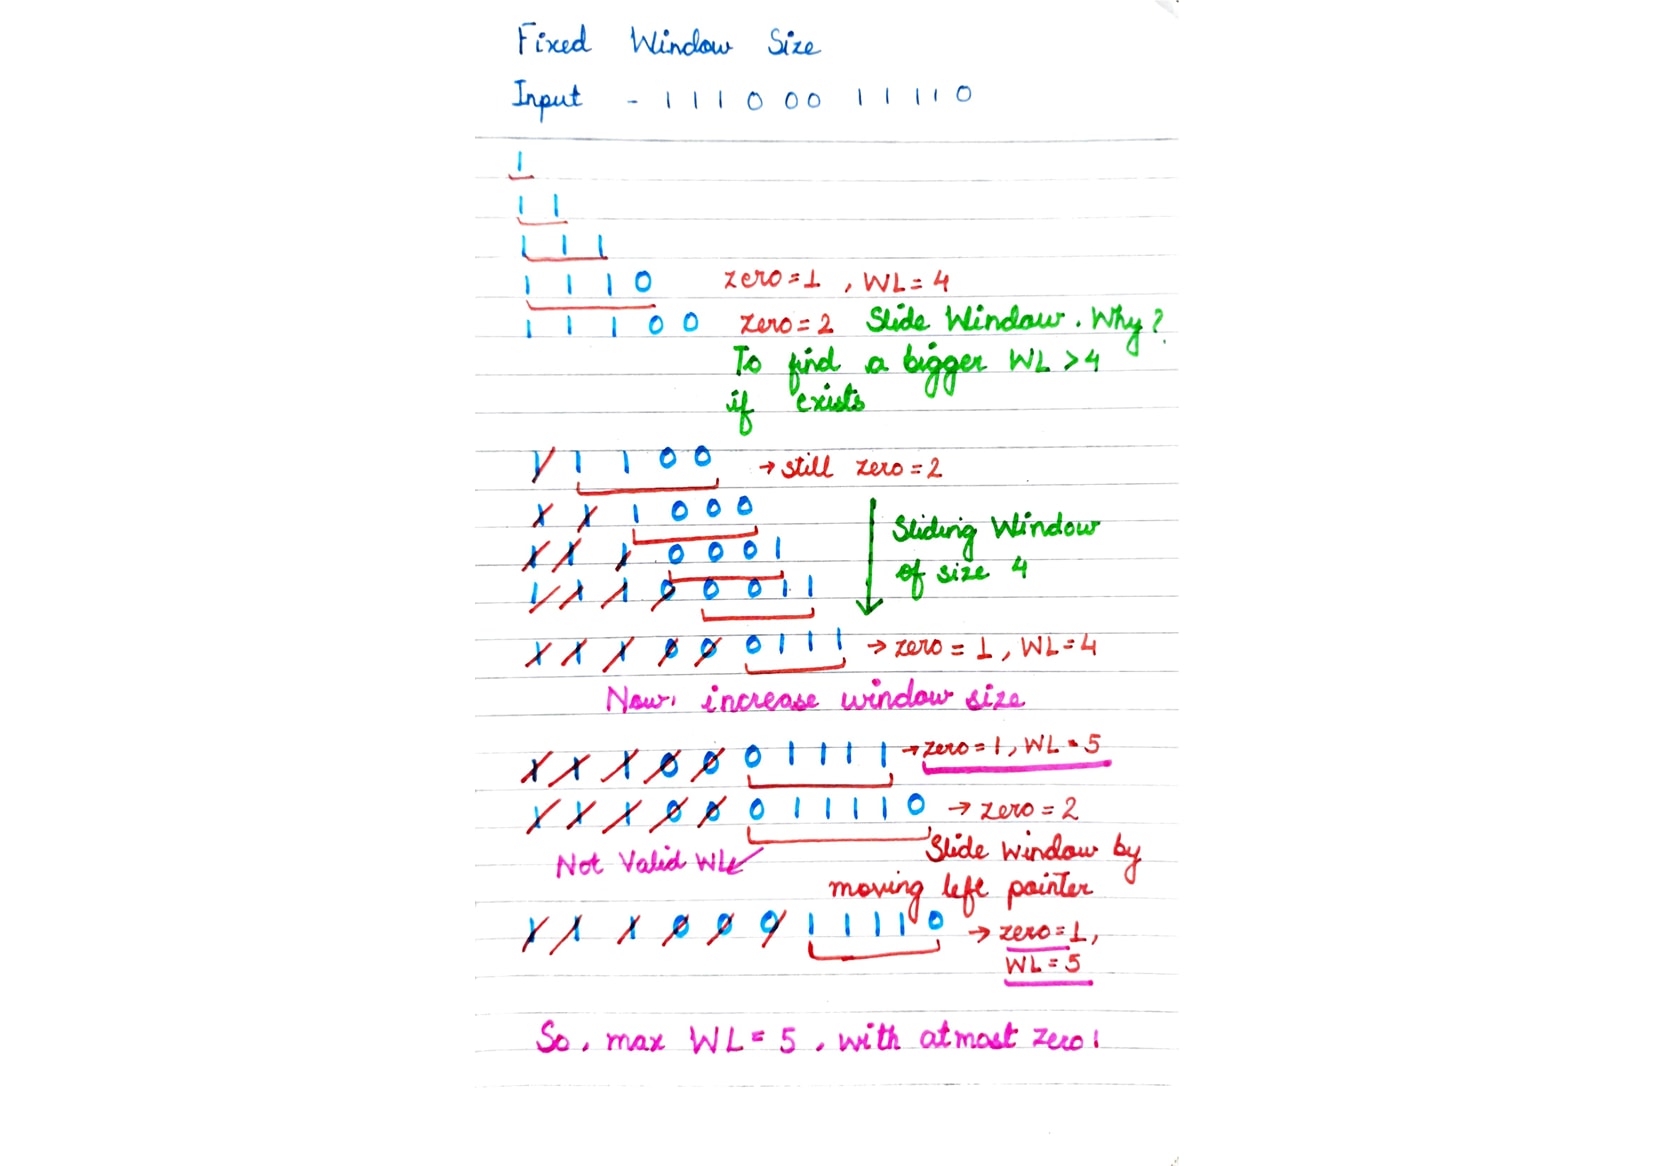 Fixed Window Size
Input - 1 1 1 0 0 0 1 1 1 1 0
1
1 1
1 1 1
1 1 1 0 zero=1, WL=4
1 1 1 0 0 zero=2 Slide Window. Why?
To find a bigger WL >4
if exists
1 1 1 0 0 → still zero=2
1 1 1 0 0 0
1 1 1 0 0 0 1
1 1 1 0 0 0 1 1
Sliding Window
of size 4
1 1 1 0 0 0 1 1 1 → zero=1, WL=4
Now, increase window size
1 1 1 0 0 0 1 1 1 1 → zero=1, WL=5
1 1 1 0 0 0 1 1 1 1 0 → zero=2
Not Valid WL
Slide window by
moving left pointer
1 1 1 0 0 0 1 1 1 1 0 → zero=1,
WL=5
So, max WL=5, with atmost zero 1